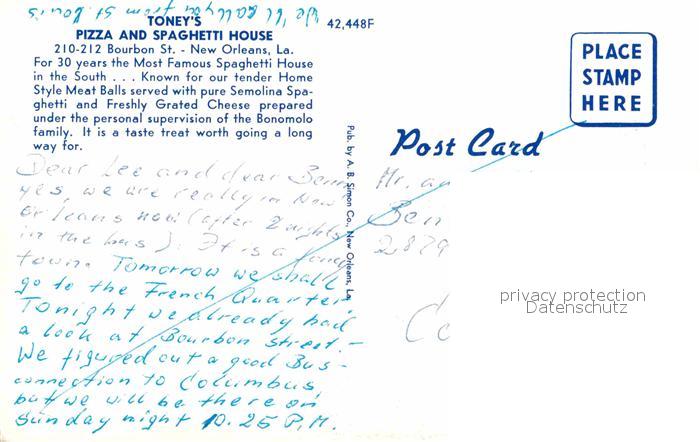 We'll call you from St. Louis
TONEY'S
PIZZA AND SPAGHETTI HOUSE
210-212 Bourbon St. - New Orleans, La.
For 30 years the Most Famous Spaghetti House
in the South . . . Known for our tender Home
Style Meat Balls served with pure Semolina Spa-
ghetti and Freshly Grated Cheese prepared
under the personal supervision of the Bonomolo
family. It is a taste treat worth going a long
way for.
42,448F
PLACE
STAMP
HERE
Post Card
Pub. by A. B. Simon Co., New Orleans, La.
Dear Lee and dear Benn
yes, we are really in New
Orleans now (after 2 nights
in the bus). It is a
town. Tomorrow we shall
go to the French Quarter.
Tonight we already had
a look at Bourbon Street. -
We figured out a good Bus-
connection to Columbus
but we will be there on
Sunday night 10.25 P.M.
Mr. an
Ben
2879
Co
privacy protection
Datenschutz